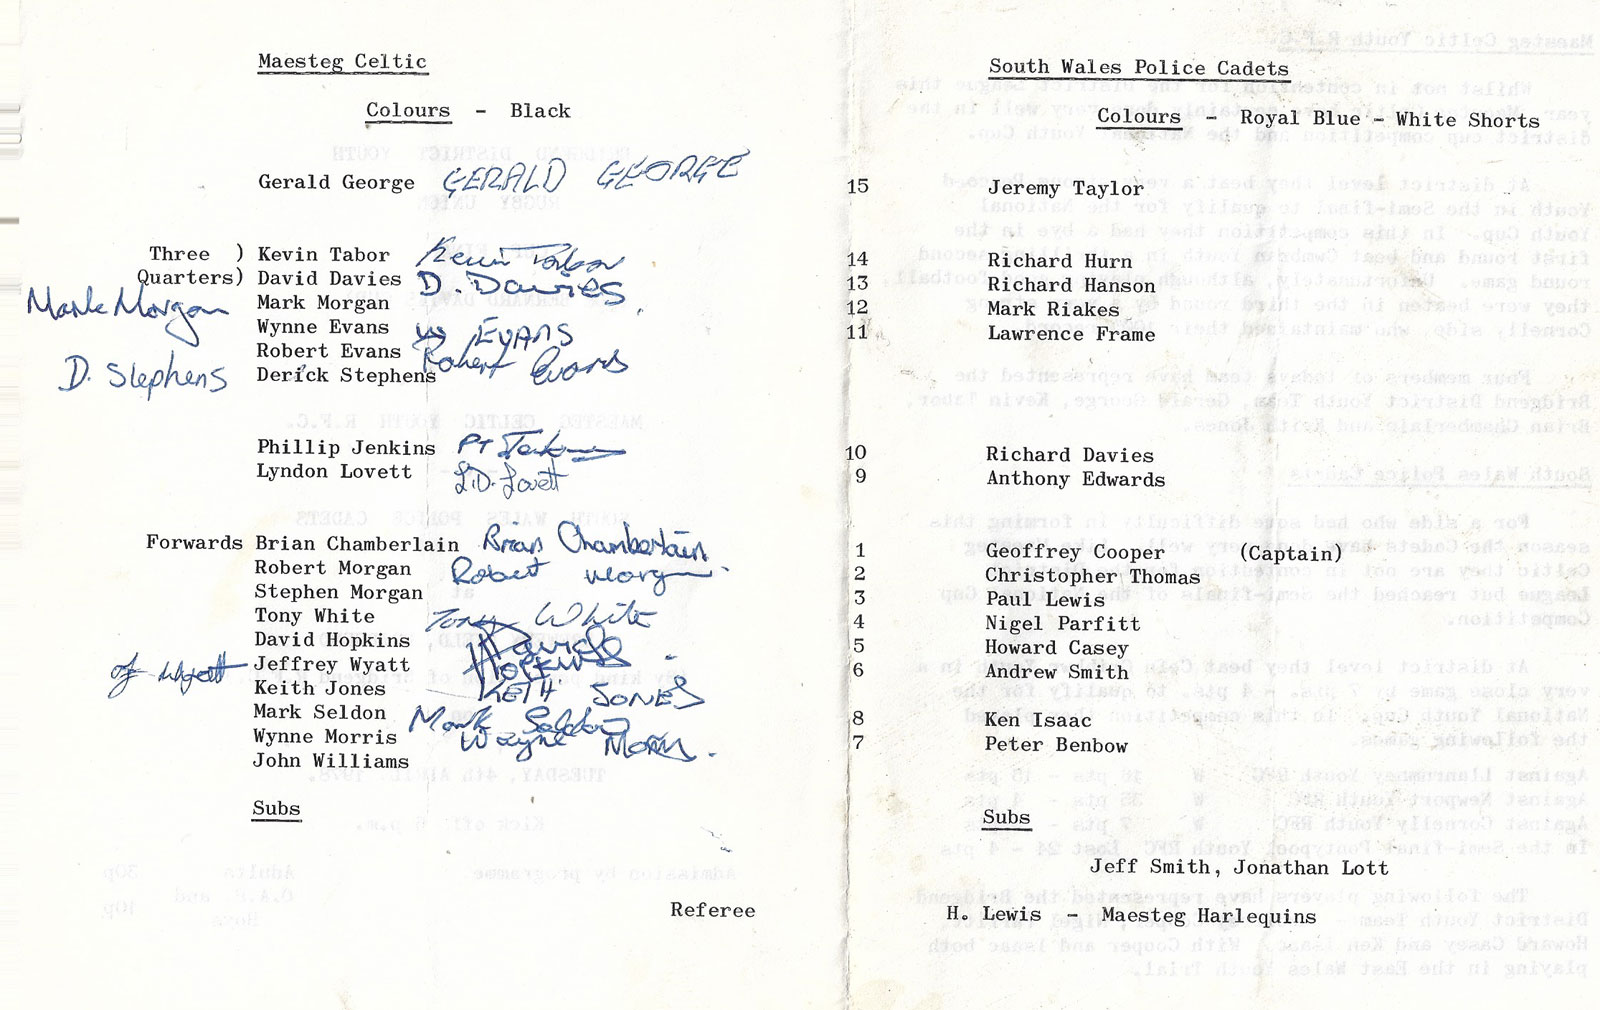 Maesteg Celtic
Colours - Black
Gerald George GERALD GEORGE
Three ) Kevin Tabor Kevin Tabor
Quarters) David Davies D. Davies
Mark Morgan Mark Morgan
Wynne Evans W EVANS
Robert Evans Robert Evans
D. Stephens Derick Stephens
Phillip Jenkins
Lyndon Lovett L.D. Lovett
Forwards Brian Chamberlain Brian Chamberlain
Robert Morgan Robert Morgan
Stephen Morgan
Tony White Tony White
David Hopkins David Hopkins
Jeffrey Wyatt
Keith Jones KEITH JONES
Mark Seldon Mark Seldon
Wynne Morris Wayne Morris
John Williams
Subs
Referee
South Wales Police Cadets
Colours - Royal Blue - White Shorts
15 Jeremy Taylor
14 Richard Hurn
13 Richard Hanson
12 Mark Riakes
11 Lawrence Frame
10 Richard Davies
9 Anthony Edwards
1 Geoffrey Cooper (Captain)
2 Christopher Thomas
3 Paul Lewis
4 Nigel Parfitt
5 Howard Casey
6 Andrew Smith
8 Ken Isaac
7 Peter Benbow
Subs
Jeff Smith, Jonathan Lott
H. Lewis - Maesteg Harlequins